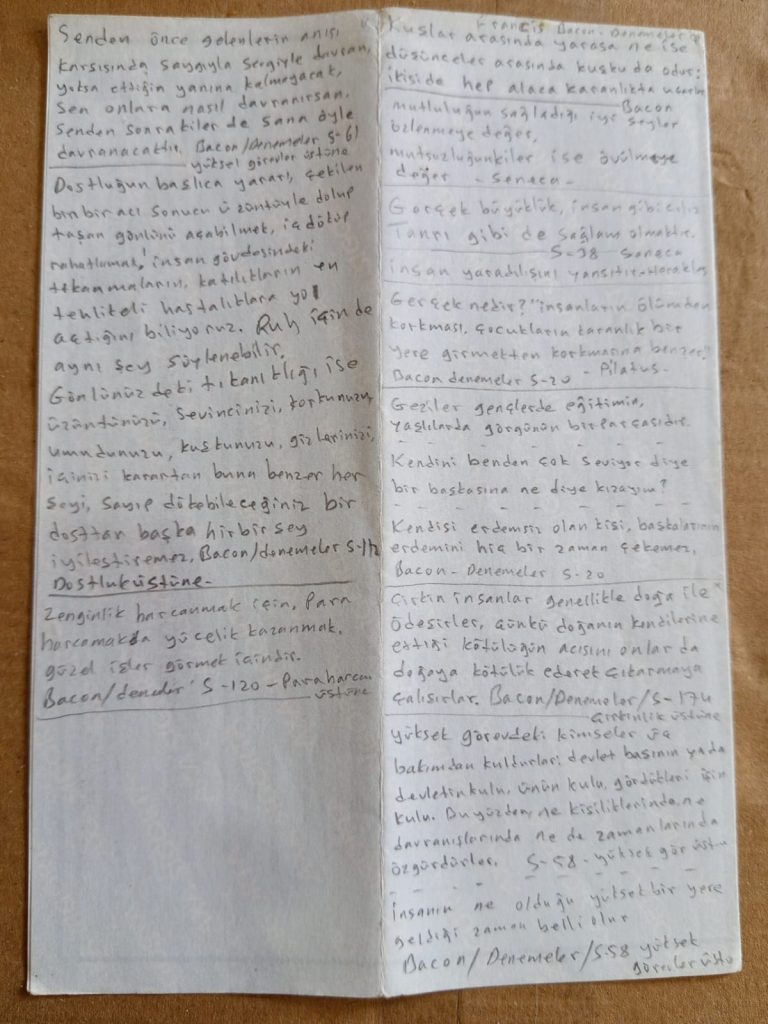 Senden önce gelenlerin anısı
karşısında saygıyla sevgiyle davran,
yoksa ettiğin yanına kalmayacak,
sen onlara nasıl davranırsan.
Senden sonrakiler de sana öyle
davranacaktır. Bacon/Denemeler S-61
yüksel görevler üstüne
Dostluğun başlıca yararı, çekilen
binbir acı sonucu üzüntüyle dolup
taşan gönlünü açabilmek, iç döküp
rahatlamak! insan gövdesindeki
tıkanmaların, katılıkların en
tehlikeli hastalıklara yol
açtığını biliyoruz. Ruh için de
aynı şey söylenebilir.
Gönlünüzdeki tıkanıklığı ise
üzüntünüzü, sevincinizi, korkunuzu,
umudunuzu, kuşkunuzu, gizlerinizi,
içinizi karartan buna benzer her
şeyi, sayıp dökebileceğiniz bir
dosttan başka hiçbir şey
iyileştiremez, Bacon/denemeler S-112
Dostluk üstüne-
Zenginlik harcanmak için, Para
harcamakda yücelik kazanmak,
güzel işler görmek içindir.
Bacon/ S-120 - Para harcama
üstüne
Francis Bacon - Denemeler
Kuşlar arasında yarasa ne ise
düşünceler arasında kuşku da odur:
ikiside hep alaca karanlıkta uçarlar
Bacon
mutluluğun sağladığı iyi şeyler
özlenmeye değer,
mutsuzluğunkiler ise övülmeye
değer - Seneca -
Gerçek büyüklük, insan gibi cılız
Tanrı gibi de sağlam olmaktır.
S-38 Seneca
insan yaradılışını yansıtır
Gerçek nedir? "insanların ölümden
korkması, çocukların karanlık bir
yere girmekten korkmasına benzer"
Bacon denemeler S-20 - Pilatus -
Geziler gençlerde eğitimin,
yaşlılarda görgünün bir parçasıdır.
Kendini benden çok seviyor diye
bir başkasına ne diye kızayım?
Kendisi erdemsiz olan kişi, başkalarının
erdemini hiç bir zaman çekemez,
Bacon - Denemeler S-20
Çirkin insanlar genellikle doğa ile
ödeşirler, çünkü doğanın kendilerine
ettiği kötülüğün acısını onlar da
doğaya kötülük ederek çıkarmaya
çalışırlar. Bacon/Denemeler/S-174
Çirkinlik üstüne
yüksek görevdeki kimseler üç
bakımdan kuldurlar: devlet başının ya da
devletin kulu, ünün kulu, gördükleri işin
kulu. Bu yüzden, ne kişiliklerinde, ne
davranışlarında ne de zamanlarında
özgürdürler. S-58 - yüksek gör üstü
insanın ne olduğu yüksek bir yere
geldiği zaman belli olur
Bacon/Denemeler/S-58 yüksek
görevler üstü